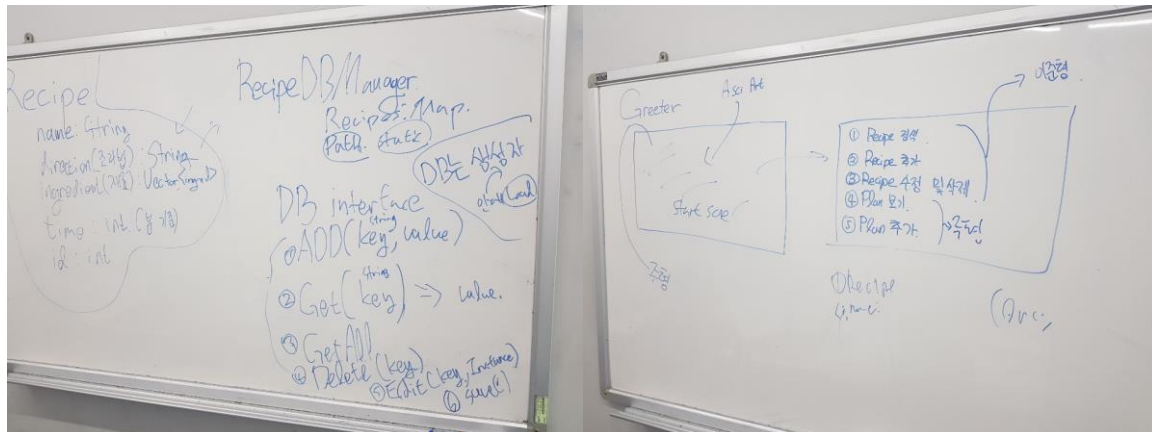 Recipe
name: String
direction(조리법): String
ingredient(재료): Vector<ingred>
time: int (분 기준)
id: int
RecipeDBManager
Recipes: Map.
Path. static
DB는 생성자
Load
DB interface
String
① ADD(key, value)
String
② Get(key) => value.
③ GetAll
④ Delete(key)
⑤ Edit(key, Instance)
⑥ save()
Greeter
Asci Art
start
준형
이준형
① Recipe 검색
② Recipe 추가
③ Recipe 수정 및 삭제
④ Plan 보기
⑤ Plan 추가
① Recipe